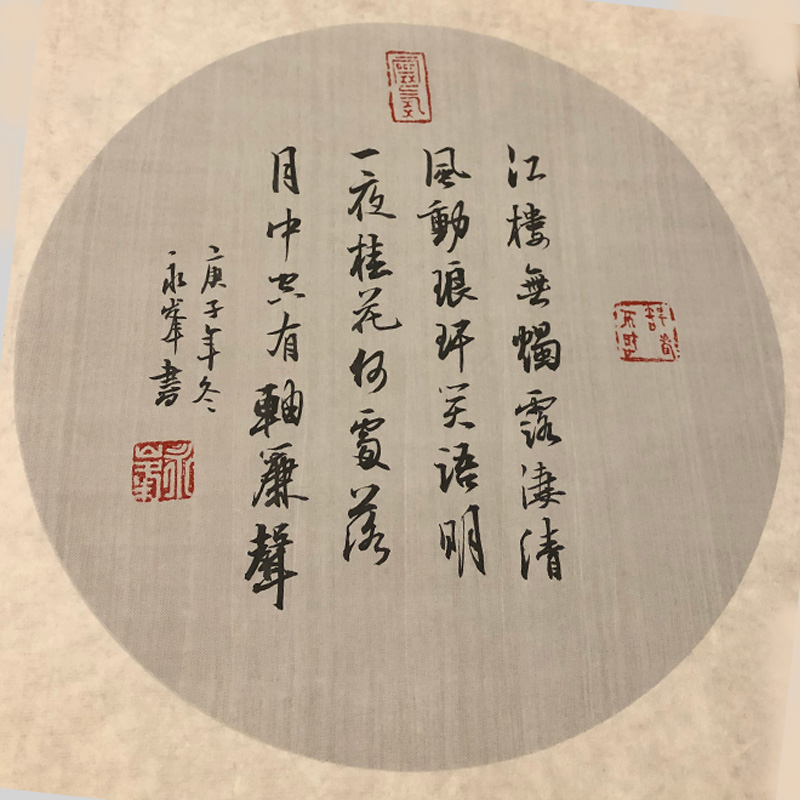 靈氣
江樓無燭露淒清
風動琅玕笑語明
一夜桂花何處落
月中空有軸簾聲
庚子年冬
永峰書
永峰